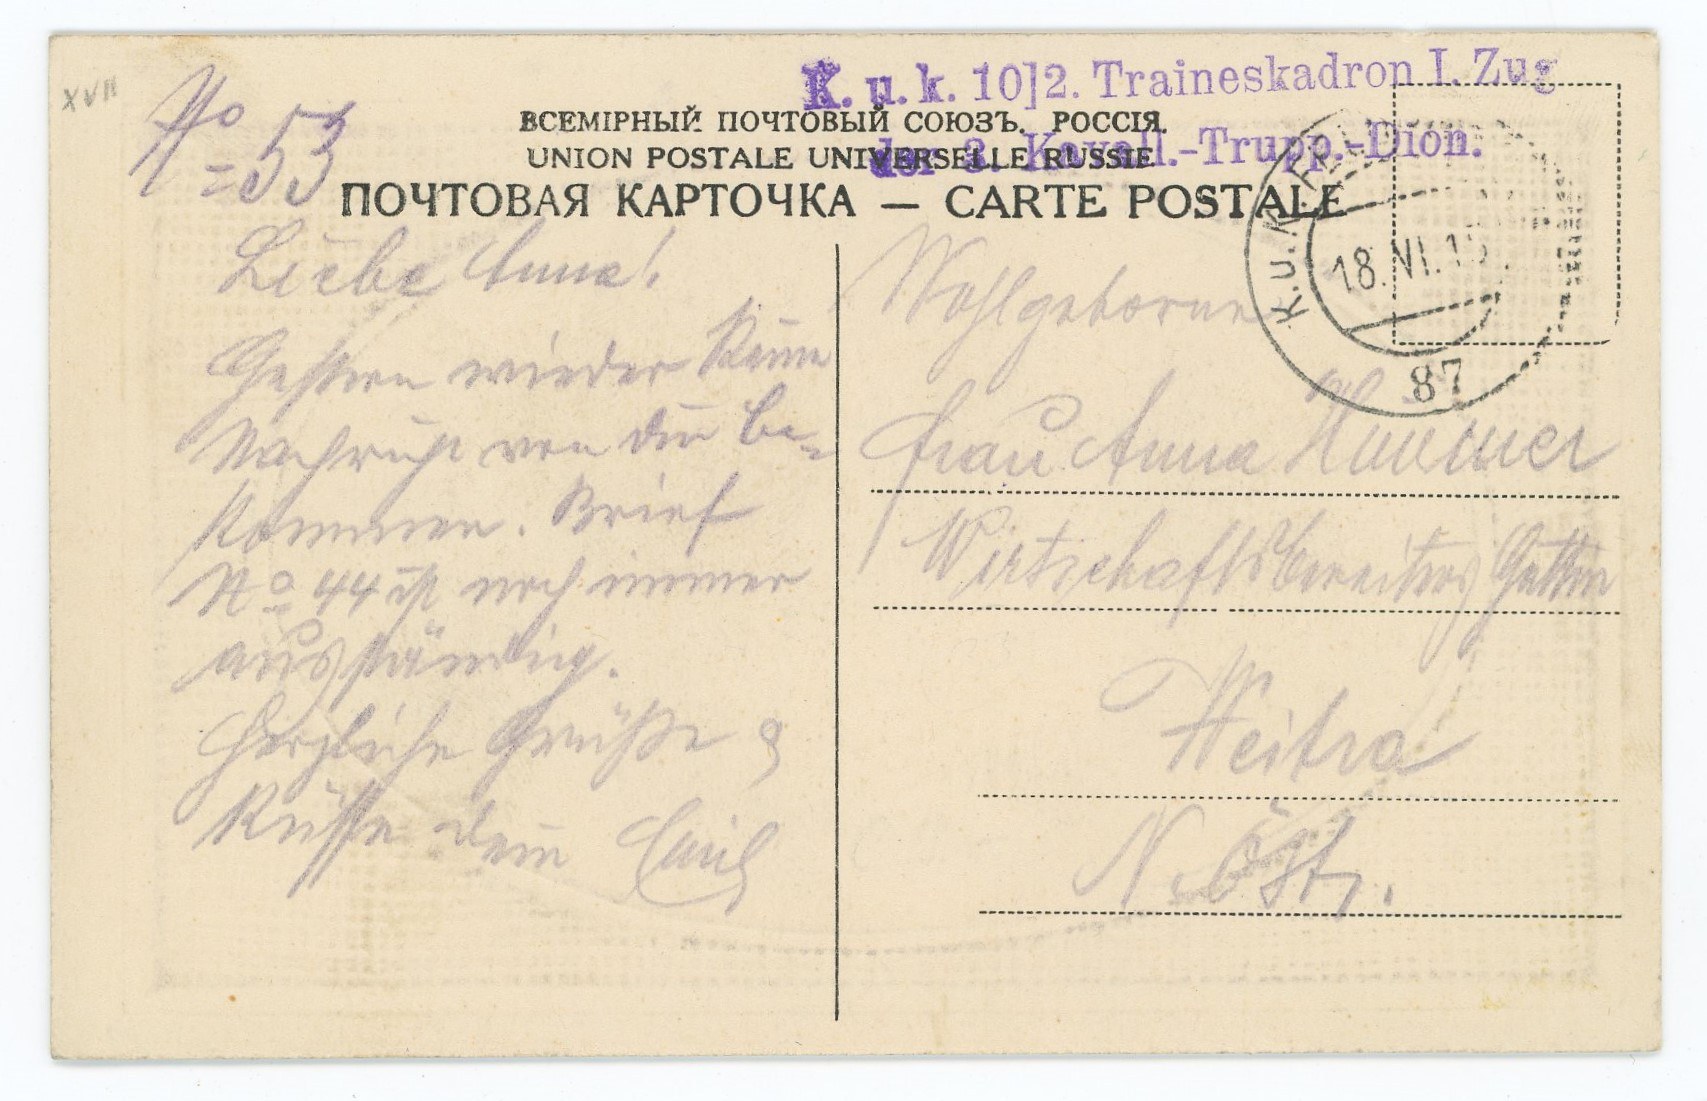 XVII
No 53
K. u. k. 10/2. Traineskadron I. Zug
der 3. Kavall.-Trupp.-Dion.
ВСЕМІРНЫЙ ПОЧТОВЫЙ СОЮЗЪ. РОССІЯ.
UNION POSTALE UNIVERSELLE RUSSIE
ПОЧТОВАЯ КАРТОЧКА — CARTE POSTALE
K. u. K.
18. VI. 15
87
Liebe Anna!
Gestern wieder keine
Nachricht von dir be-
kommen. Brief
No 44 ist noch immer
ausständig.
Herzliche Grüße &
Küsse dein
Wohlgeborne
Frau Anna
Wirtschaftsbereiters Gattin
Weitra
N. Öst.